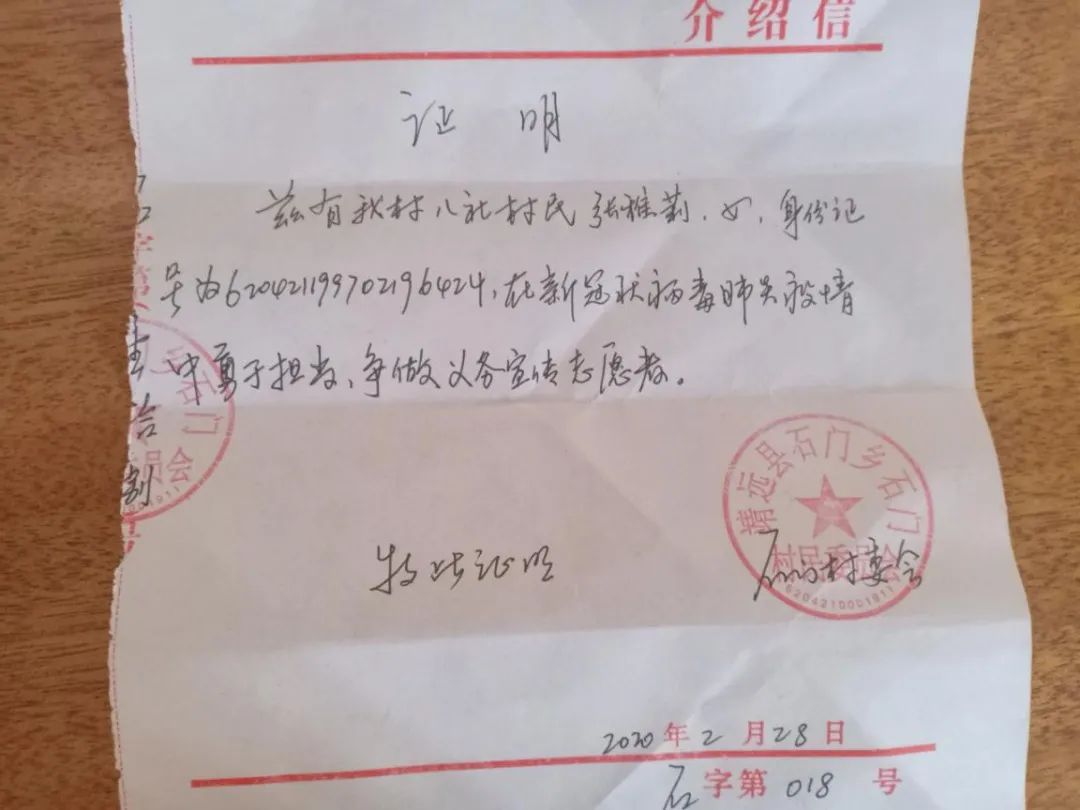 介绍信
证 明
兹有我村八社村民张雅莉,女,身份证
号为620421199702196424,在新冠状病毒肺炎疫情
中勇于担当、争做义务宣传志愿者。
特此证明
靖远县石门乡石门
村民委员会
6204210001911
石门村委会
2020年2月28日
石字第018号
字第
石门
委员会